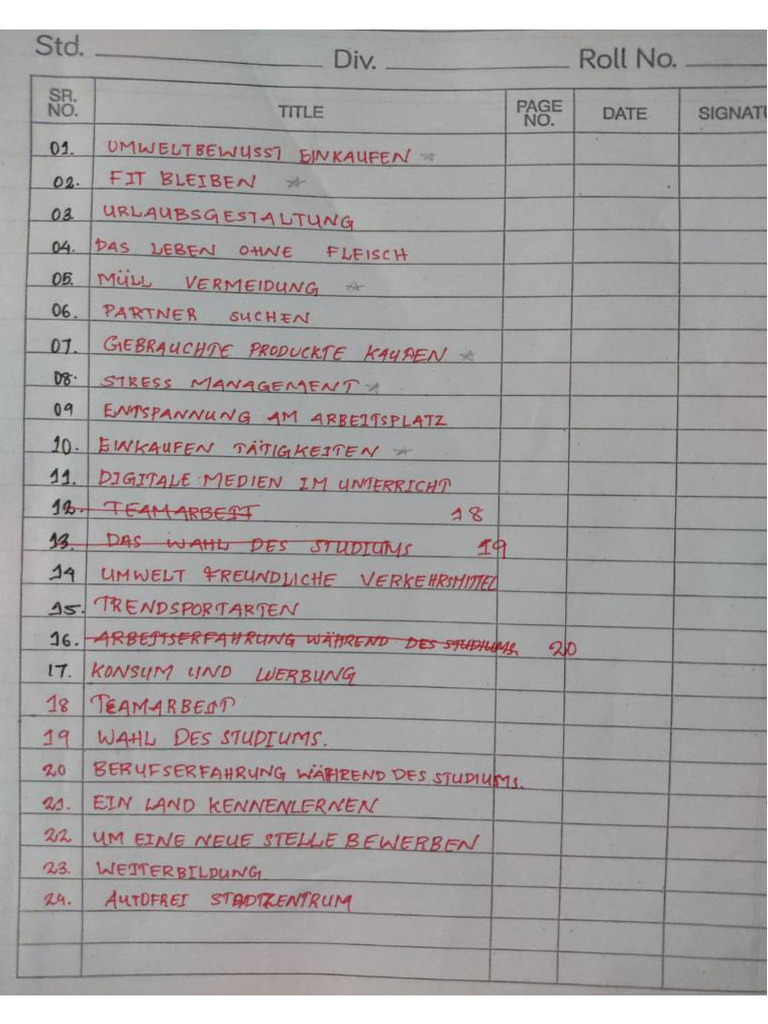 Std. Div. Roll No.
SR. NO. TITLE PAGE NO. DATE SIGNATU
01. UMWELTBEWUSST EINKAUFEN ☆
02. FIT BLEIBEN ☆
03. URLAUBSGESTALTUNG
04. DAS LEBEN OHNE FLEISCH
05. MÜLL VERMEIDUNG ☆
06. PARTNER SUCHEN
07. GEBRAUCHTE PRODUCKTE KAUFEN ☆
08. STRESS MANAGEMENT ☆
09 ENTSPANNUNG AM ARBEITSPLATZ
10. EINKAUFEN TÄTIGKEITEN ☆
11. DIGITALE MEDIEN IM UNTERRICHT
12. TEAMARBEIT 18
13. DAS WAHL DES STUDIUMS 19
14 UMWELT FREUNDLICHE VERKEHRSMITTEL
15. TRENDSPORTARTEN
16. ARBEITSERFAHRUNG WÄHREND DES STUDIUMS. 20
17. KONSUM UND WERBUNG
18 TEAMARBEIT
19 WAHL DES STUDIUMS.
20 BERUFSERFAHRUNG WÄHREND DES STUDIUMS.
21. EIN LAND KENNENLERNEN
22 UM EINE NEUE STELLE BEWERBEN
23. WEITERBILDUNG
24. AUTOFREI STADTZENTRUM